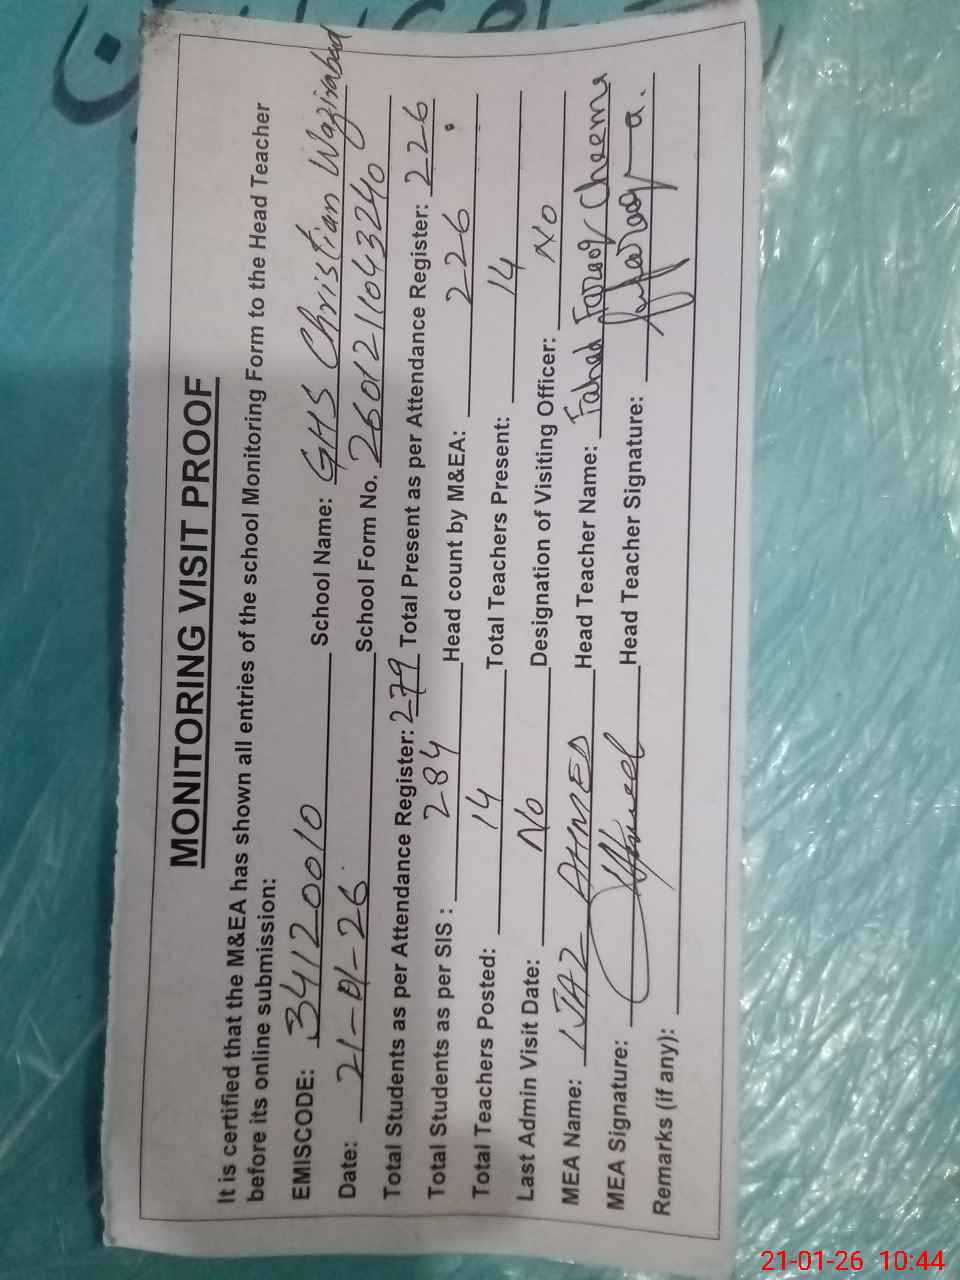 MONITORING VISIT PROOF
It is certified that the M&EA has shown all entries of the school Monitoring Form to the Head Teacher
before its online submission:
EMISCODE: 34120010 School Name: GHS Christian Wazirabad
Date: 21-01-26 School Form No. 2601211043240
Total Students as per Attendance Register: 279 Total Present as per Attendance Register: 226
Total Students as per SIS : 284 Head count by M&EA: 226
Total Teachers Posted: 14 Total Teachers Present: 14
Last Admin Visit Date: No Designation of Visiting Officer: No
MEA Name: IJAZ AHMED Head Teacher Name: Fahad Farooq Cheema
MEA Signature: Head Teacher Signature:
Remarks (if any):
21-01-26 10:44